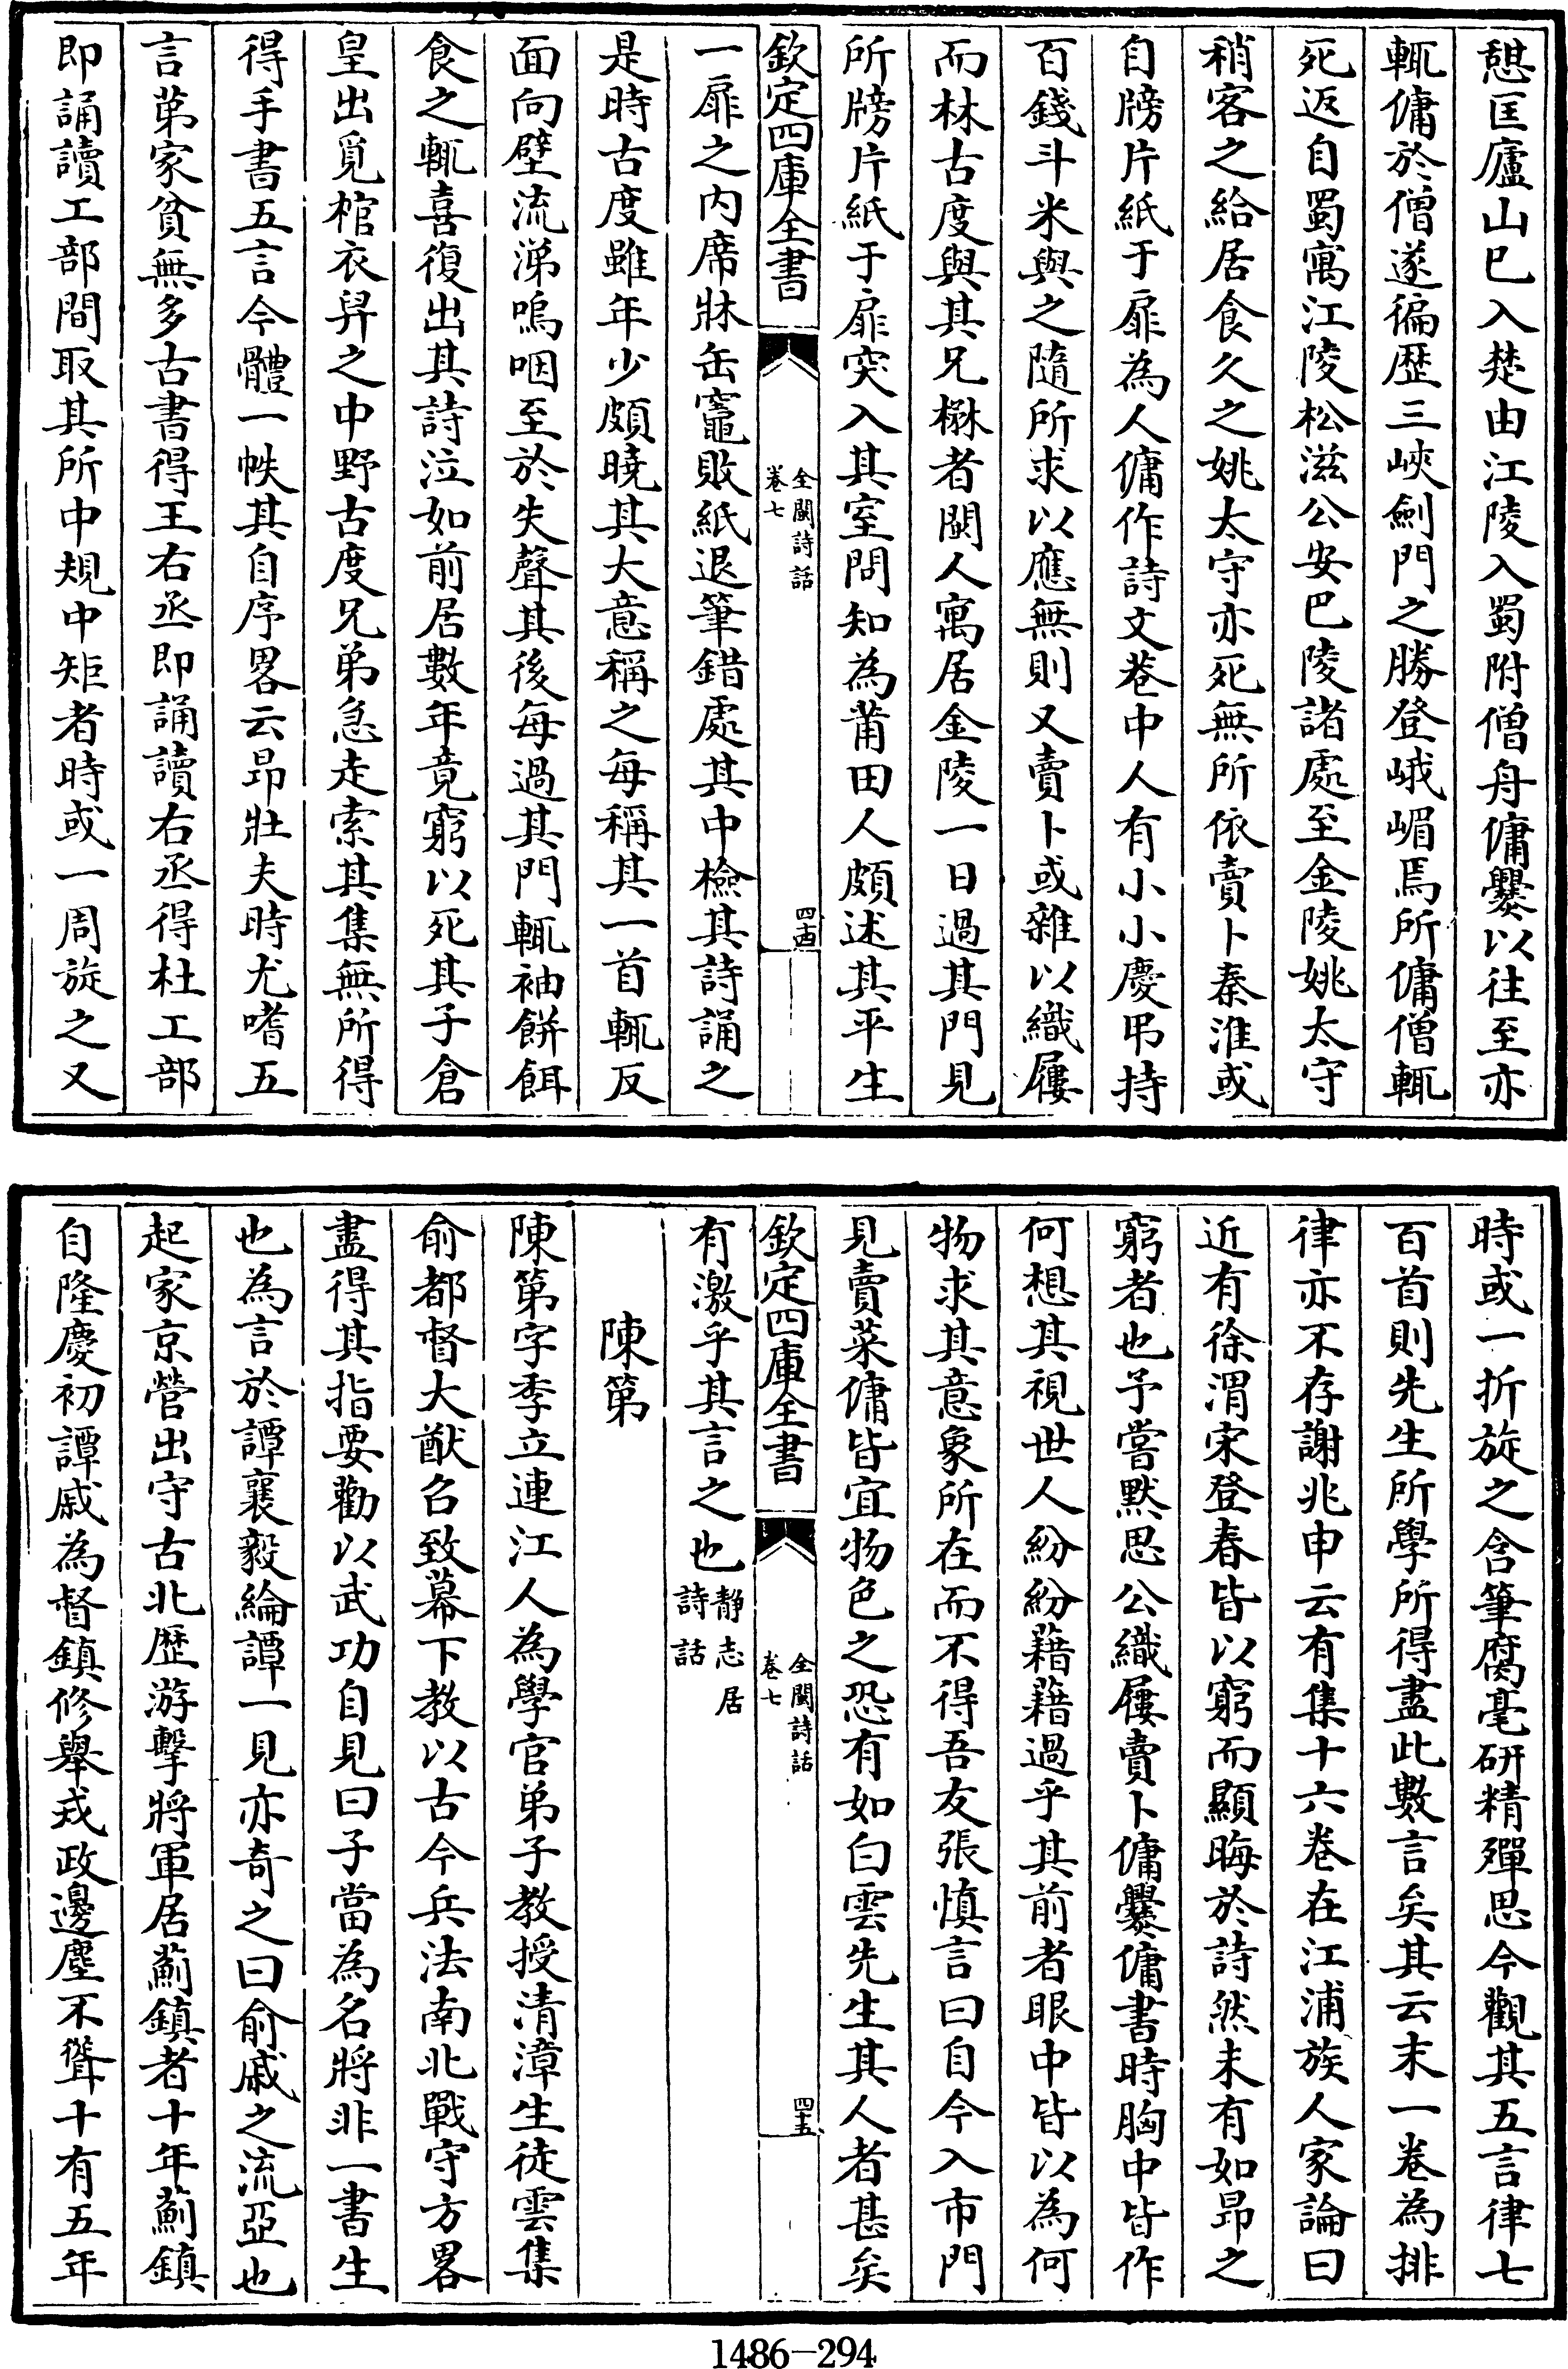 憇匡廬山已入楚由江陵入蜀附僧舟傭爨以往至亦
輒傭於僧遂徧歴三峽劍門之勝登峨嵋焉所傭僧輒
死返自蜀寓江陵松滋公安巴陵諸處至金陵姚太守
稍客之給居食久之姚太守亦死無所依賣卜秦淮或
自牓片紙于扉為人傭作詩文巷中人有小小慶弔持
百錢斗米與之隨所求以應無則又賣卜或雜以織屨
而林古度與其兄楙者閩人寓居金陵一日過其門見
所牓片紙于扉突入其室問知為莆田人頗述其平生
欽定四庫全書
全閩詩話
卷七
四十四
一扉之内席牀缶竈敗紙退筆錯處其中檢其詩誦之
是時古度雖年少頗曉其大意稱之每稱其一首輒反
面向壁流涕嗚咽至於失聲其後每過其門輒袖餅餌
食之輒喜復出其詩泣如前居數年竟窮以死其子倉
皇出覓棺衣舁之中野古度兄弟急走索其集無所得
得手書五言今體一帙其自序畧云昂壯夫時尤嗜五
言第家貧無多古書得王右丞即誦讀右丞得杜工部
即誦讀工部間取其所中規中矩者時或一周旋之又
時或一折旋之含筆腐毫研精殫思今觀其五言律七
百首則先生所學所得盡此數言矣其云末一卷為排
律亦不存謝兆申云有集十六卷在江浦族人家論曰
近有徐渭宋登春皆以窮而顯晦於詩然未有如昂之
窮者也予嘗默思公織屨賣卜傭爨傭書時胸中皆作
何想其視世人紛紛藉藉過乎其前者眼中皆以為何
物求其意象所在而不得吾友張慎言曰自今入市門
見賣菜傭皆宜物色之恐有如白雲先生其人者甚矣
欽定四庫全書
全閩詩話
卷七
四十五
有激乎其言之也静志居詩話
陳第
陳第字季立連江人為學官弟子教授清漳生徒雲集
俞都督大猷召致幕下教以古今兵法南北戰守方畧
盡得其指要勸以武功自見曰子當為名將非一書生
也為言於譚襄毅綸譚一見亦奇之曰俞戚之流亞也
起家京營出守古北歴游擊將軍居薊鎮者十年薊鎮
自隆慶初譚戚為督鎮修舉戎政邊塵不聳十有五年
1486-294